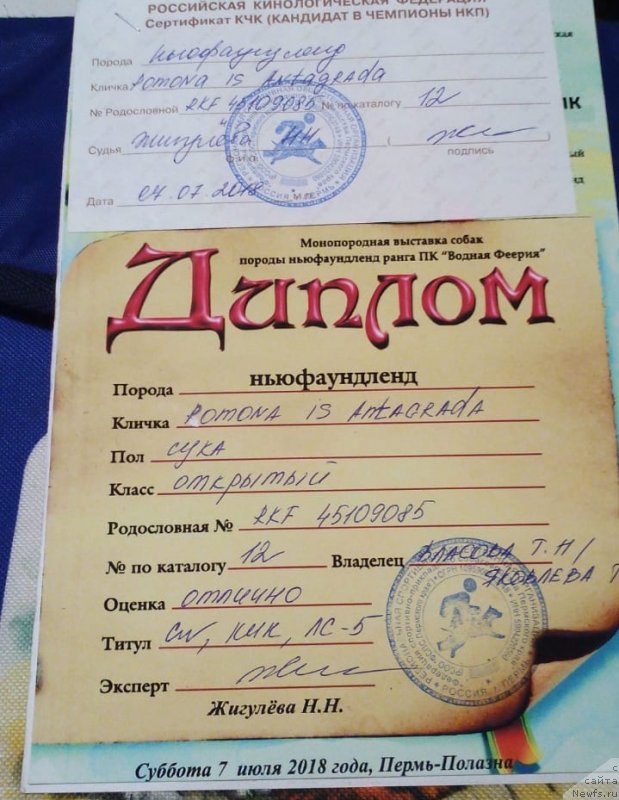 РОССИЙСКАЯ КИНОЛОГИЧЕСКАЯ ФЕДЕРАЦИЯ
Сертификат КЧК (КАНДИДАТ В ЧЕМПИОНЫ НКП)
Порода ньюфаундленд
Кличка Pomona is Antagrada
№ Родословной RKF 45109085 № по каталогу 12
Судья Жигулёва Н Н ( )
Ф И О подпись
Дата 07.07.2018
РОССИЯ
Монопородная выставка собак
породы ньюфаундленд ранга ПК "Водная Феерия"
Диплом
Порода ньюфаундленд
Кличка Pomona is Antagrada
Пол сука
Класс открытый
Родословная № RKF 45109085
№ по каталогу 12 Владелец Власова Т.Н/
Яковлева Т
Оценка отлично
Титул CW, КЧК, ЛС-5
Эксперт
Жигулёва Н.Н.
РОССИЯ
Суббота 7 июля 2018 года, Пермь-Полазна
с
сайта
Newfs.ru